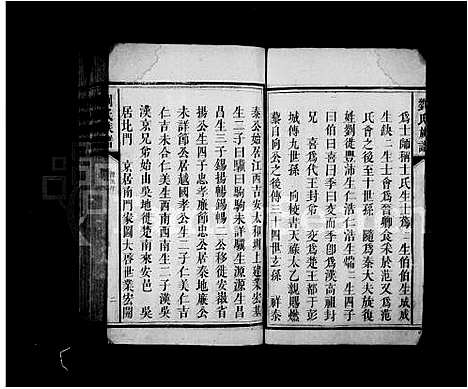 劉氏族譜
爲士師稱士氏生士蒍 生伯伯生成成
生缺二生士會爲晉卿食采於范又爲范
氏會之後至十世孫 隨爲秦大夫族復
姓劉徙豐沛生仁浩生煓二生四子
曰伯曰喜曰仲曰交而季卽爲漢高祖封
兄 喜爲代王封弟 交爲楚王都于彭
城傳九世孫 向校書天祿太乙親賜燃
藜自向公之後傳三十四世玄孫 祥泰
泰公始居江西吉安太和圳上建業宏基
生二子曰驥曰駒駒未詳驥生源源生昌
昌生三子錫揚暢錫暢二公移徙安徽省
揚公生四子忠孝廉節忠公居泰地廉公
未詳節公居越國孝公生二子仁美仁吉
仁吉未合仁美生西南西南生二子漢京
漢京兄弟始由吳地徙楚南來安邑 吳
居北門 京居南門家園大齊世業宏開